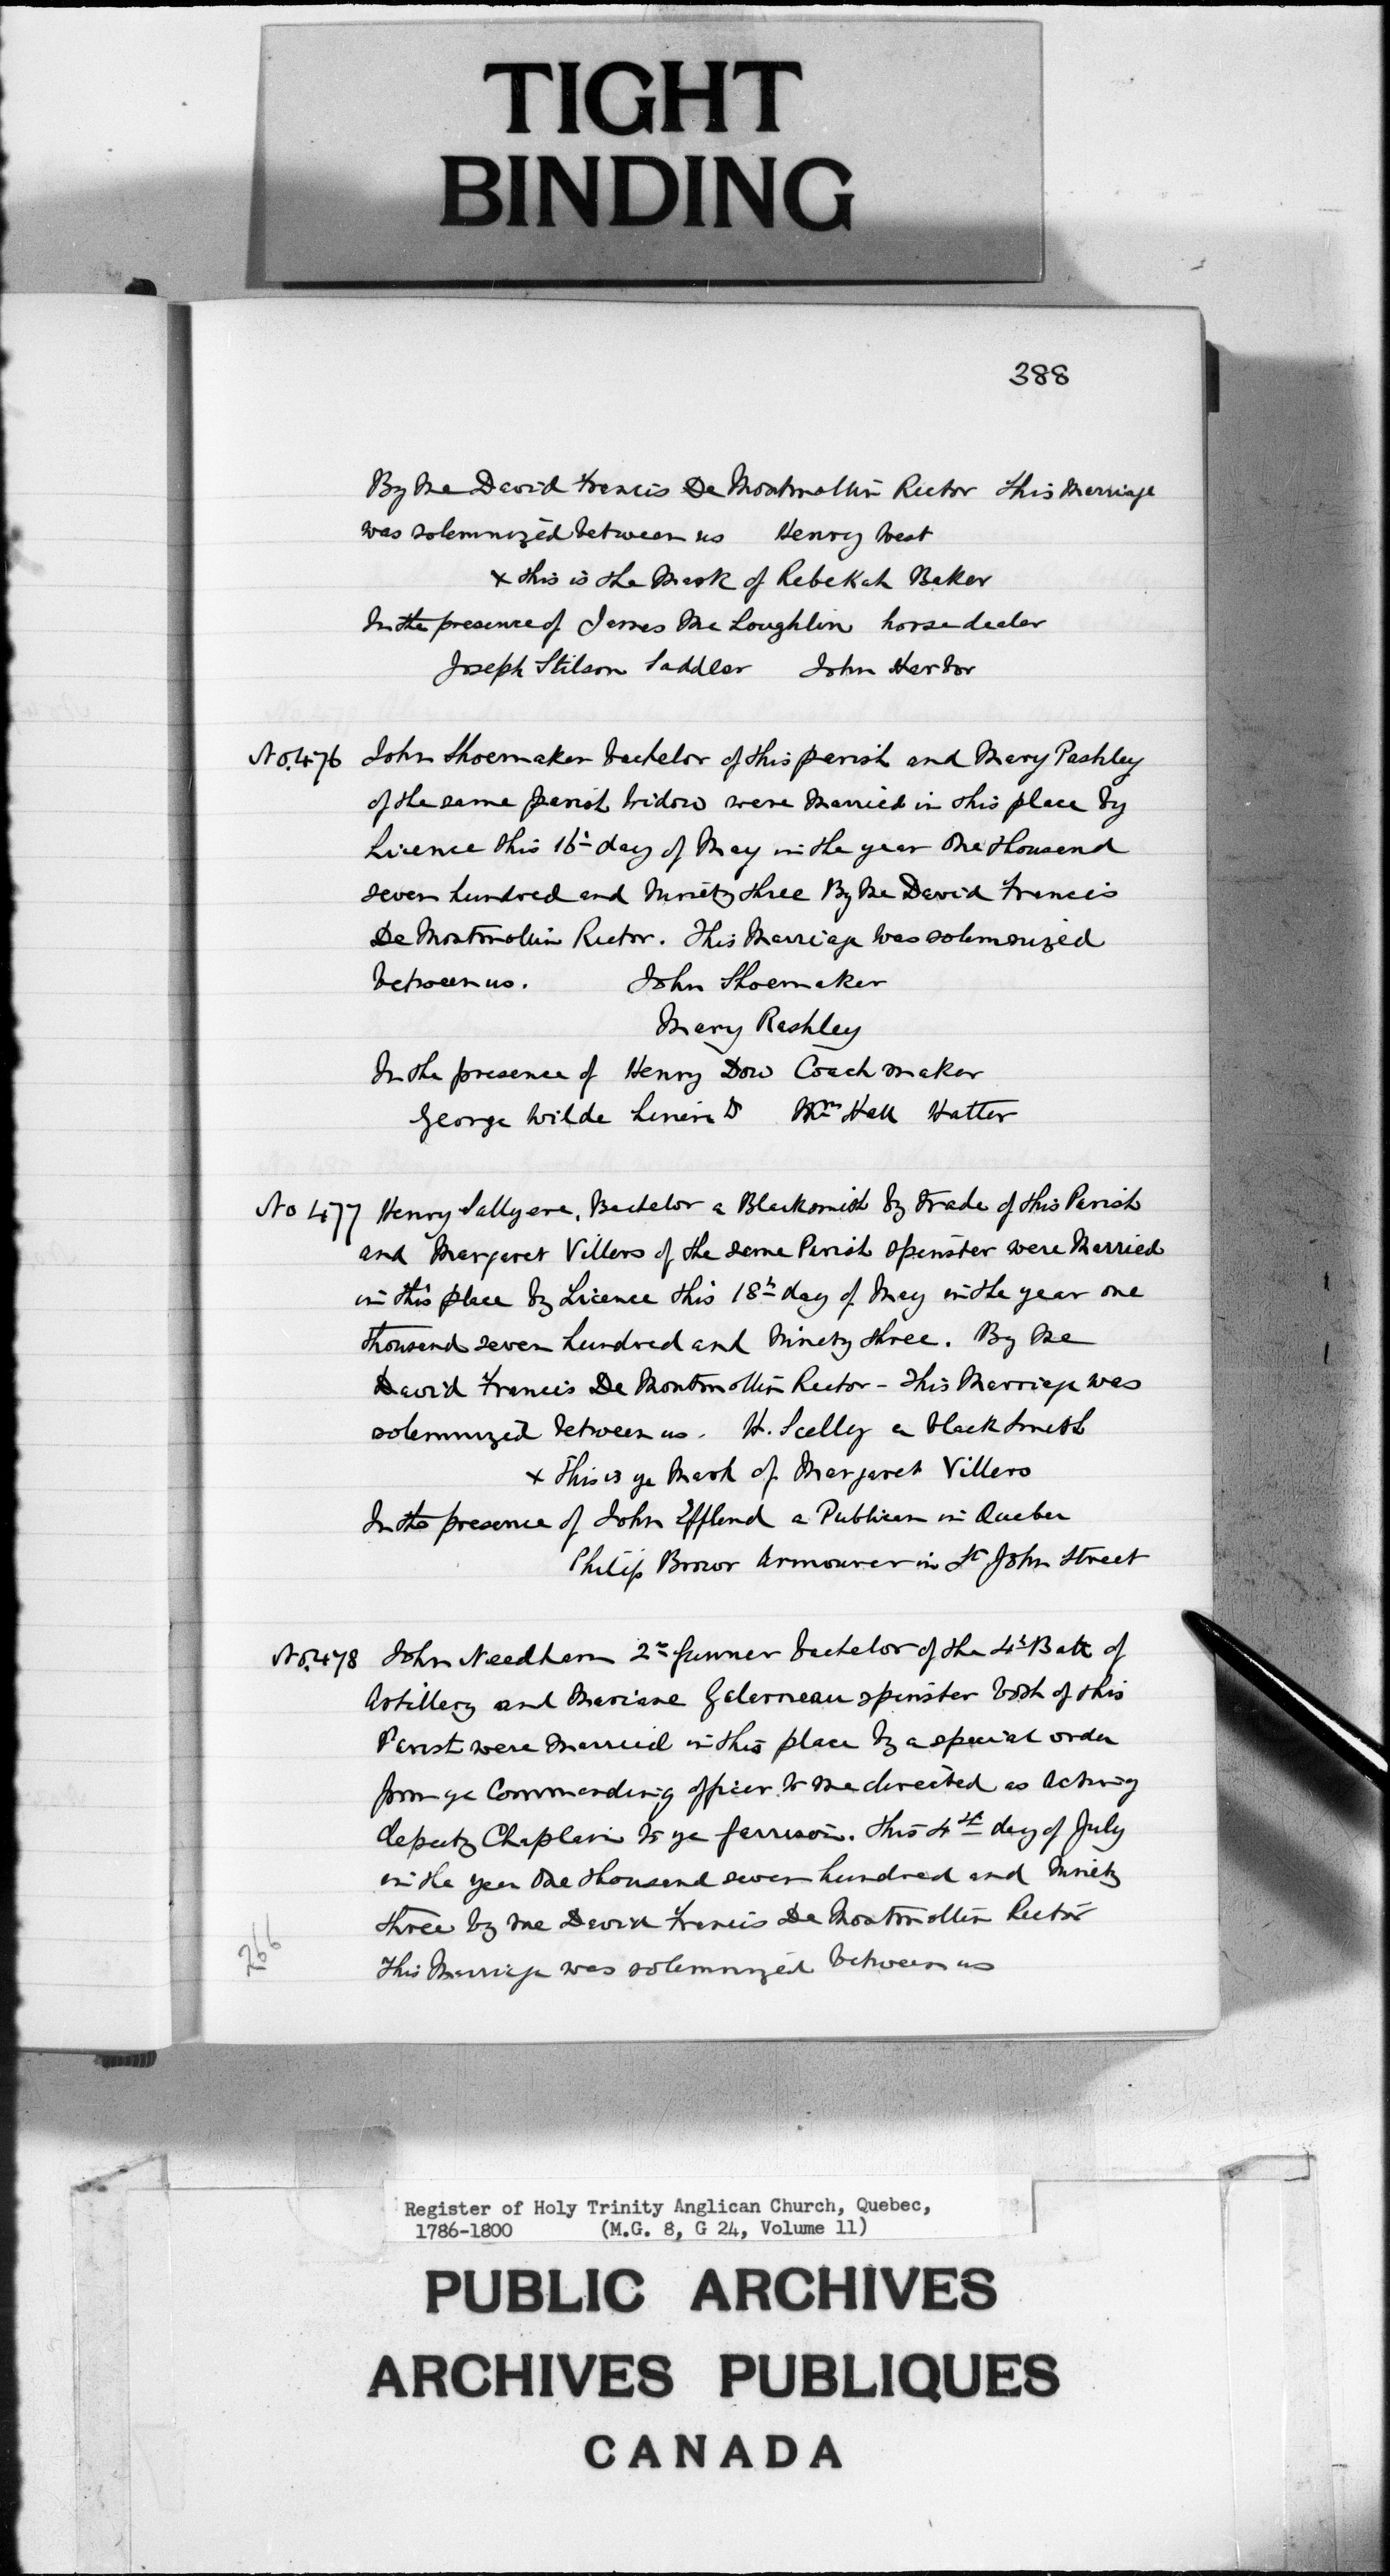 TIGHT
BINDING
388
By Me David Francis De Montmollin Rector This Marriage
was solemnized between us Henry West
x this is the Mark of Rebekah Baker
In the presence of James Mc Loughlin horse dealer
Joseph Stilson Saddler John Harbor
No. 476 John Shoemaker bachelor of this parish and Mary Pashley
of the same parish Widow were Married in this place by
Licence this 16th day of May in the year One thousand
seven hundred and Ninety three By Me David Francis
De Montmollin Rector. This Marriage was solemnized
between us. John Shoemaker
Mary Rashley
In the presence of Henry Dow Coach maker
George Wilde Wm Hall Hatter
No 477 Henry Sallyere, Bachelor a Blacksmith by trade of this Parish
and Margaret Villers of the same Parish spinster were Married
in this place by Licence this 18th day of May in the year one
thousand seven hundred and Ninety three. By Me
David Francis De Montmollin Rector - This Marriage was
solemnized between us. H. Scelly a black Smith
x This is ye Mark of Margaret Villers
In the presence of John Efflend a Publican in Quebec
Philip Brown Armourer in St John Street
No. 478 John Needham 2nd Gunner bachelor of the 4th Batt of
Artillery and Mariane Galerneau spinster both of this
Parish were married in this place by a special order
from ye Commanding officer to me directed as Acting
deputy Chaplain to ye Garrison. This 4th day of July
in the year One thousand seven hundred and Ninety
three by me David Francis De Montmollin Rector
This Marriage was solemnized between us
266
Register of Holy Trinity Anglican Church, Quebec,
1786-1800 (M.G. 8, G 24, Volume 11)
PUBLIC ARCHIVES
ARCHIVES PUBLIQUES
CANADA